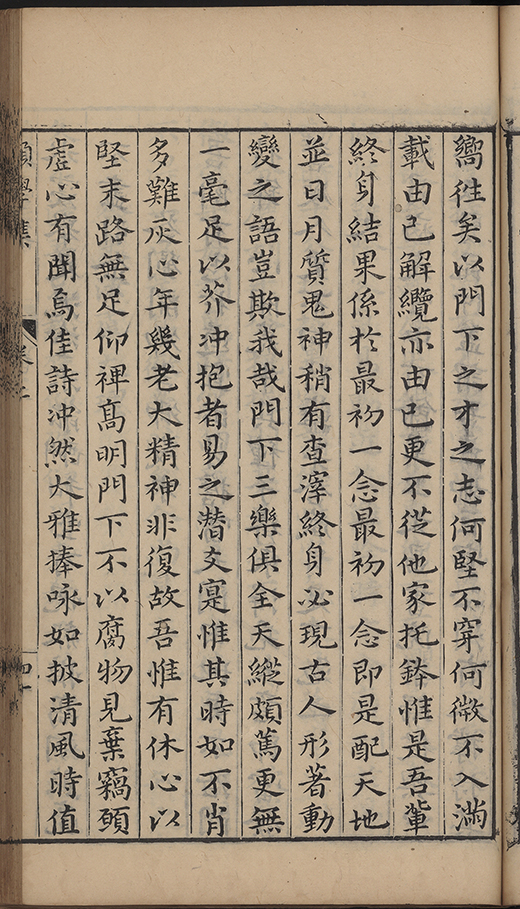 嚮徃矣以門下之才之志何堅不穿何微不入滿
載由己解纜亦由己更不從他家托鉢惟是吾輩
終身結果係於最初一念最初一念即是配天地
並日月質鬼神稍有查滓終身必現古人形著動
變之語豈欺我哉門下三樂俱全天縱頗篤更無
一毫足以芥冲抱者易之潛文寔惟其時如不肖
多難灰心年幾老大精神非復故吾惟有休心以
堅末路無足仰裨高明門下不以腐物見棄竊頤
虛心有聞焉佳詩冲然大雅捧咏如披清風時值
學集
卷之
四十